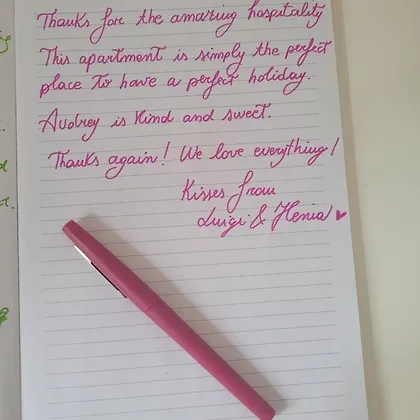 Thanks for the amazing hospitality
This apartment is simply the perfect
place to have a perfect holiday.
Audrey is kind and sweet.
Thanks again! We love everything!
Kisses from
Luigi & Ilenia ♥